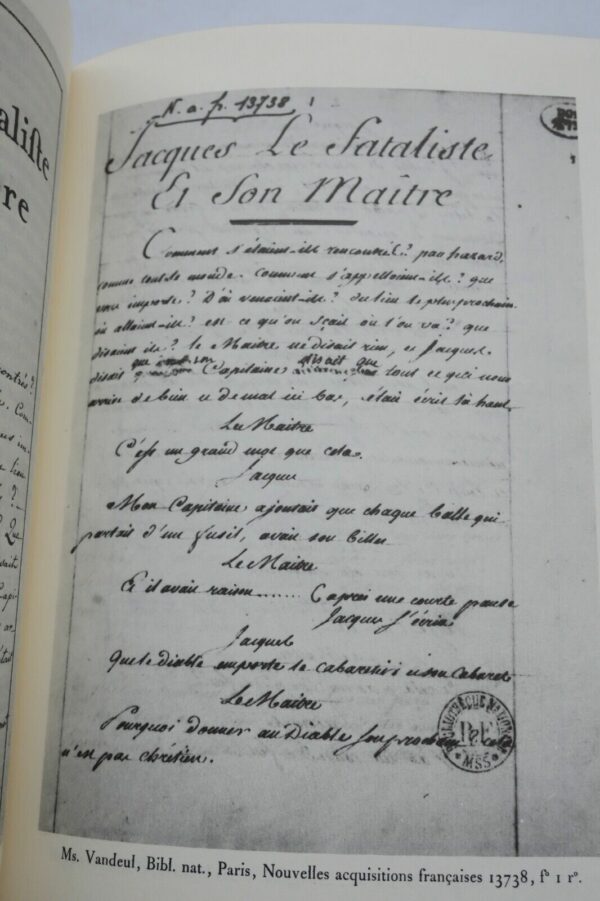 aliste
re
ontré?
N. a. fr. 13738
Jacques Le Fataliste
Et Son Maître
Comment s'étaient-ils rencontrés? par hazard,
comme tout le monde. Comment s'appelloient-ils? que
vous importe? D'où venoient-ils? du lieu le plus prochain.
où alloient-ils? est ce qu'on sçait où l'on va? que
disoient ils? le Maitre ne disait rien, et Jacques
disait que son Capitaine disait que tout ce qui nous
arrive de bien et de mal ici bas, était écrit là haut.
Le Maitre
C'est un grand mot que cela.
Jacques
Mon Capitaine ajoutait que chaque balle qui
partait d'un fusil, avait son billet
Le Maitre
Et il avait raison....... Après une courte pause
Jacques s'écria
Jacques
Que le diable emporte le cabaretier et son Cabaret
Le Maitre
Pourquoi donner au Diable son prochain
n'est pas chrétien.
BIBLIOTHÈQUE NATIONALE
MSS
Ms. Vandeul, Bibl. nat., Paris, Nouvelles acquisitions françaises 13738, fº 1 rº.